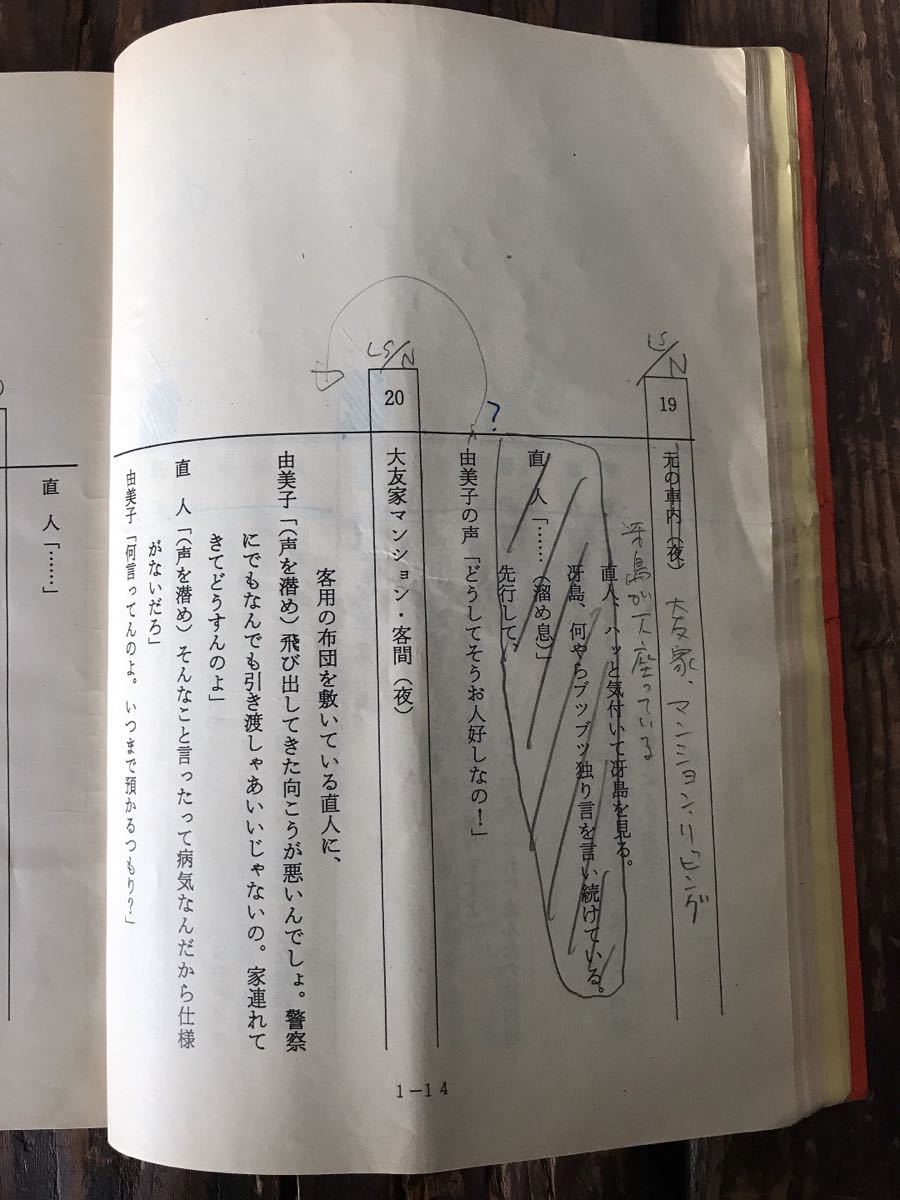 LS/N
19
元の車内（夜）
大友家、マンション・リビング
冴島が座っている
直人、ハッと気付いて冴島を見る。
冴島、何やらブツブツ独り言を言い続けている。
直　人「……（溜め息）」
先行して、
?
由美子の声「どうしてそうお人好しなの！」
LS/N
20
大友家マンション・客間（夜）
客用の布団を敷いている直人に、
由美子「（声を潜め）飛び出してきた向こうが悪いんでしょ。警察
にでもなんでも引き渡しゃあいいじゃないの。家連れて
きてどうすんのよ」
直　人「（声を潜め）そんなこと言ったって病気なんだから仕様
がないだろ」
由美子「何言ってんのよ。いつまで預かるつもり？」
1－14
直　人「……」